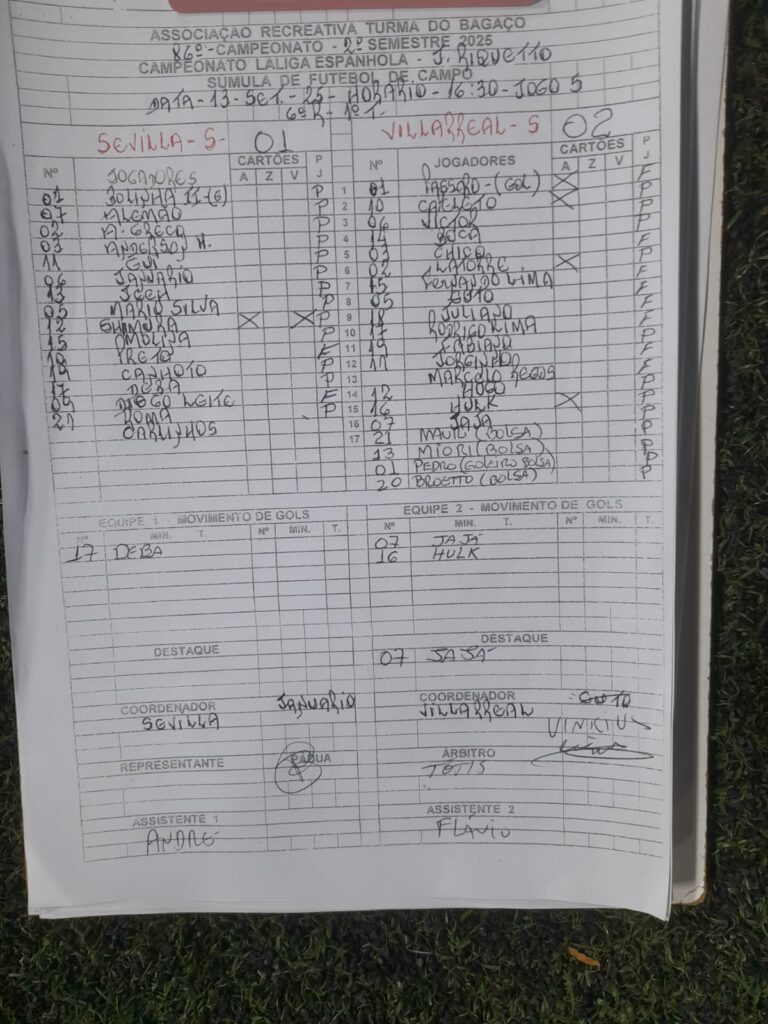 ASSOCIAÇÃO RECREATIVA TURMA DO BAGAÇO
86º-CAMPEONATO - 2º SEMESTRE 2025
CAMPEONATO LALIGA ESPANHOLA - J. RIQUETTO
SÚMULA DE FUTEBOL DE CAMPO
DATA-13-SET.-25- HORÁRIO-16:30-JOGO 5
6ª R.- 1º T.
SEVILLA-S- 01
Nº JOGADORES CARTÕES P
A Z V J
01 BOLINHA P
07 ALEMÃO P
02 M. GRECO P
03 ANDERSON M. P
11 GUI P
06 JANUÁRIO P
13 P
05 MARIO SILVA P
12 SHIMURA X X P
15 P
10 PRETO F
19 CANHOTO P
17 DEBA P
09 DIEGO LEITE F
21 P
CARLINHOS
VILLARREAL-S 02
Nº JOGADORES CARTÕES P
A Z V J
1 01 (GOL) X F
2 10 X P
3 06 VICTOR P
4 14 P
5 03 CHICO F
6 02 LATORRE X P
7 15 FERNANDO LIMA F
8 05 GUTO P
9 18 JULIANO F
10 RODRIGO LIMA F
11 19 FABIANO P
12 11 JORGINHO F
13 MARCELO P
14 12 HUGO F
15 16 HULK X P
16 07 JAJA P
17 21 MAURI (BOLSA) P
13 MIORI (BOLSA) P
01 PEDRO (GOLEIRO BOLSA) P
20 BROETTO (BOLSA) P
EQUIPE 1 - MOVIMENTO DE GOLS
Nº MIN. T. Nº MIN. T.
17 DEBA
DESTAQUE
EQUIPE 2 - MOVIMENTO DE GOLS
Nº MIN. T. Nº MIN. T.
07 JAJÁ
16 HULK
DESTAQUE
07 JAJÁ
COORDENADOR JANUARIO
SEVILLA
COORDENADOR GUTO
VILLARREAL
VINICIUS
REPRESENTANTE PÁDUA
ÁRBITRO
TOTIS
ASSISTENTE 1
ANDRÉ
ASSISTENTE 2
FLÁVIO